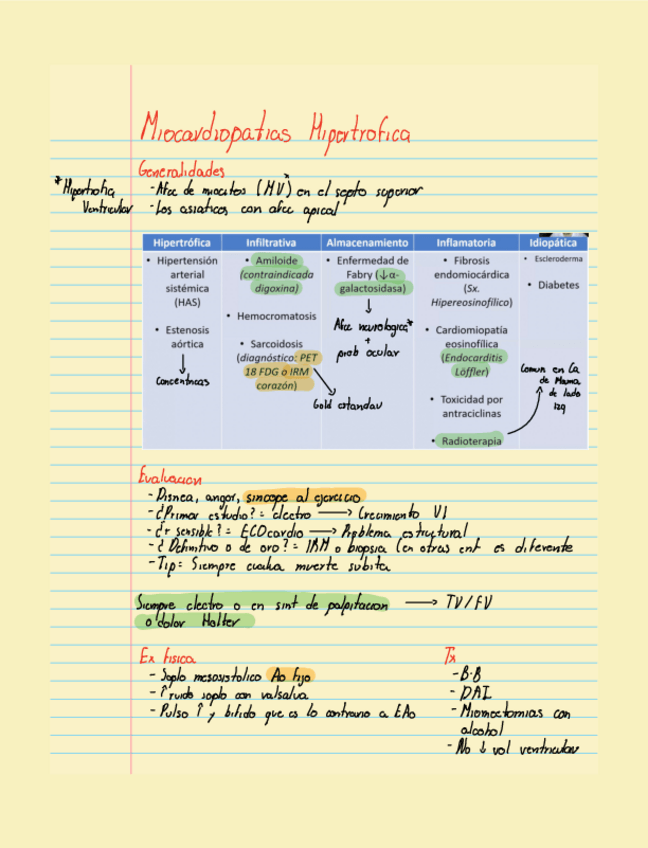 Miocardiopatias Hipertrofica
Generalidades
*Hipertrofia
Ventricular
- Afcc de miocitos (HV)* en el septo superior
- Los asiaticos con afcc apical
Hipertrófica
• Hipertensión
arterial
sistémica
(HAS)
• Estenosis
aórtica
Concentricas
Infiltrativa
• Amiloide
(contraindicada
digoxina)
• Hemocromatosis
• Sarcoidosis
(diagnóstico: PET
18 FDG o IRM
corazón)
Gold estandar
Almacenamiento
• Enfermedad de
Fabry (↓α-
galactosidasa)
Afcc neurologica*
+
prob ocular
Inflamatoria
• Fibrosis
endomiocárdica
(Sx.
Hipereosinofílico)
• Cardiomiopatía
eosinofílica
(Endocarditis
Löffler)
• Toxicidad por
antraciclinas
• Radioterapia
Idiopática
• Escleroderma
• Diabetes
Comun en Ca
de Mama
de lado
izq
Evaluacion
- Disnea, angor, sincope al ejercicio
- ¿Primer estudio? = electro → Crecimiento VI
- ¿+ sensible? = ECOcardio → Problema estructural
- ¿Definitivo o de oro? = IRM o biopsia (en otras enf es diferente
- Tip = Siempre evalua muerte subita
Siempre electro o en sint de palpitacion → TV/FV
o dolor Holter
Ex fisica
- Soplo mesosistolico Ao fijo
- ↑ ruido soplo con valsalva
- Pulso ↑ y bifido que es lo contrario a EAo
Tx
- B-B
- DAI
- Miomectomias con
alcohol
- No ↓ vol ventricular